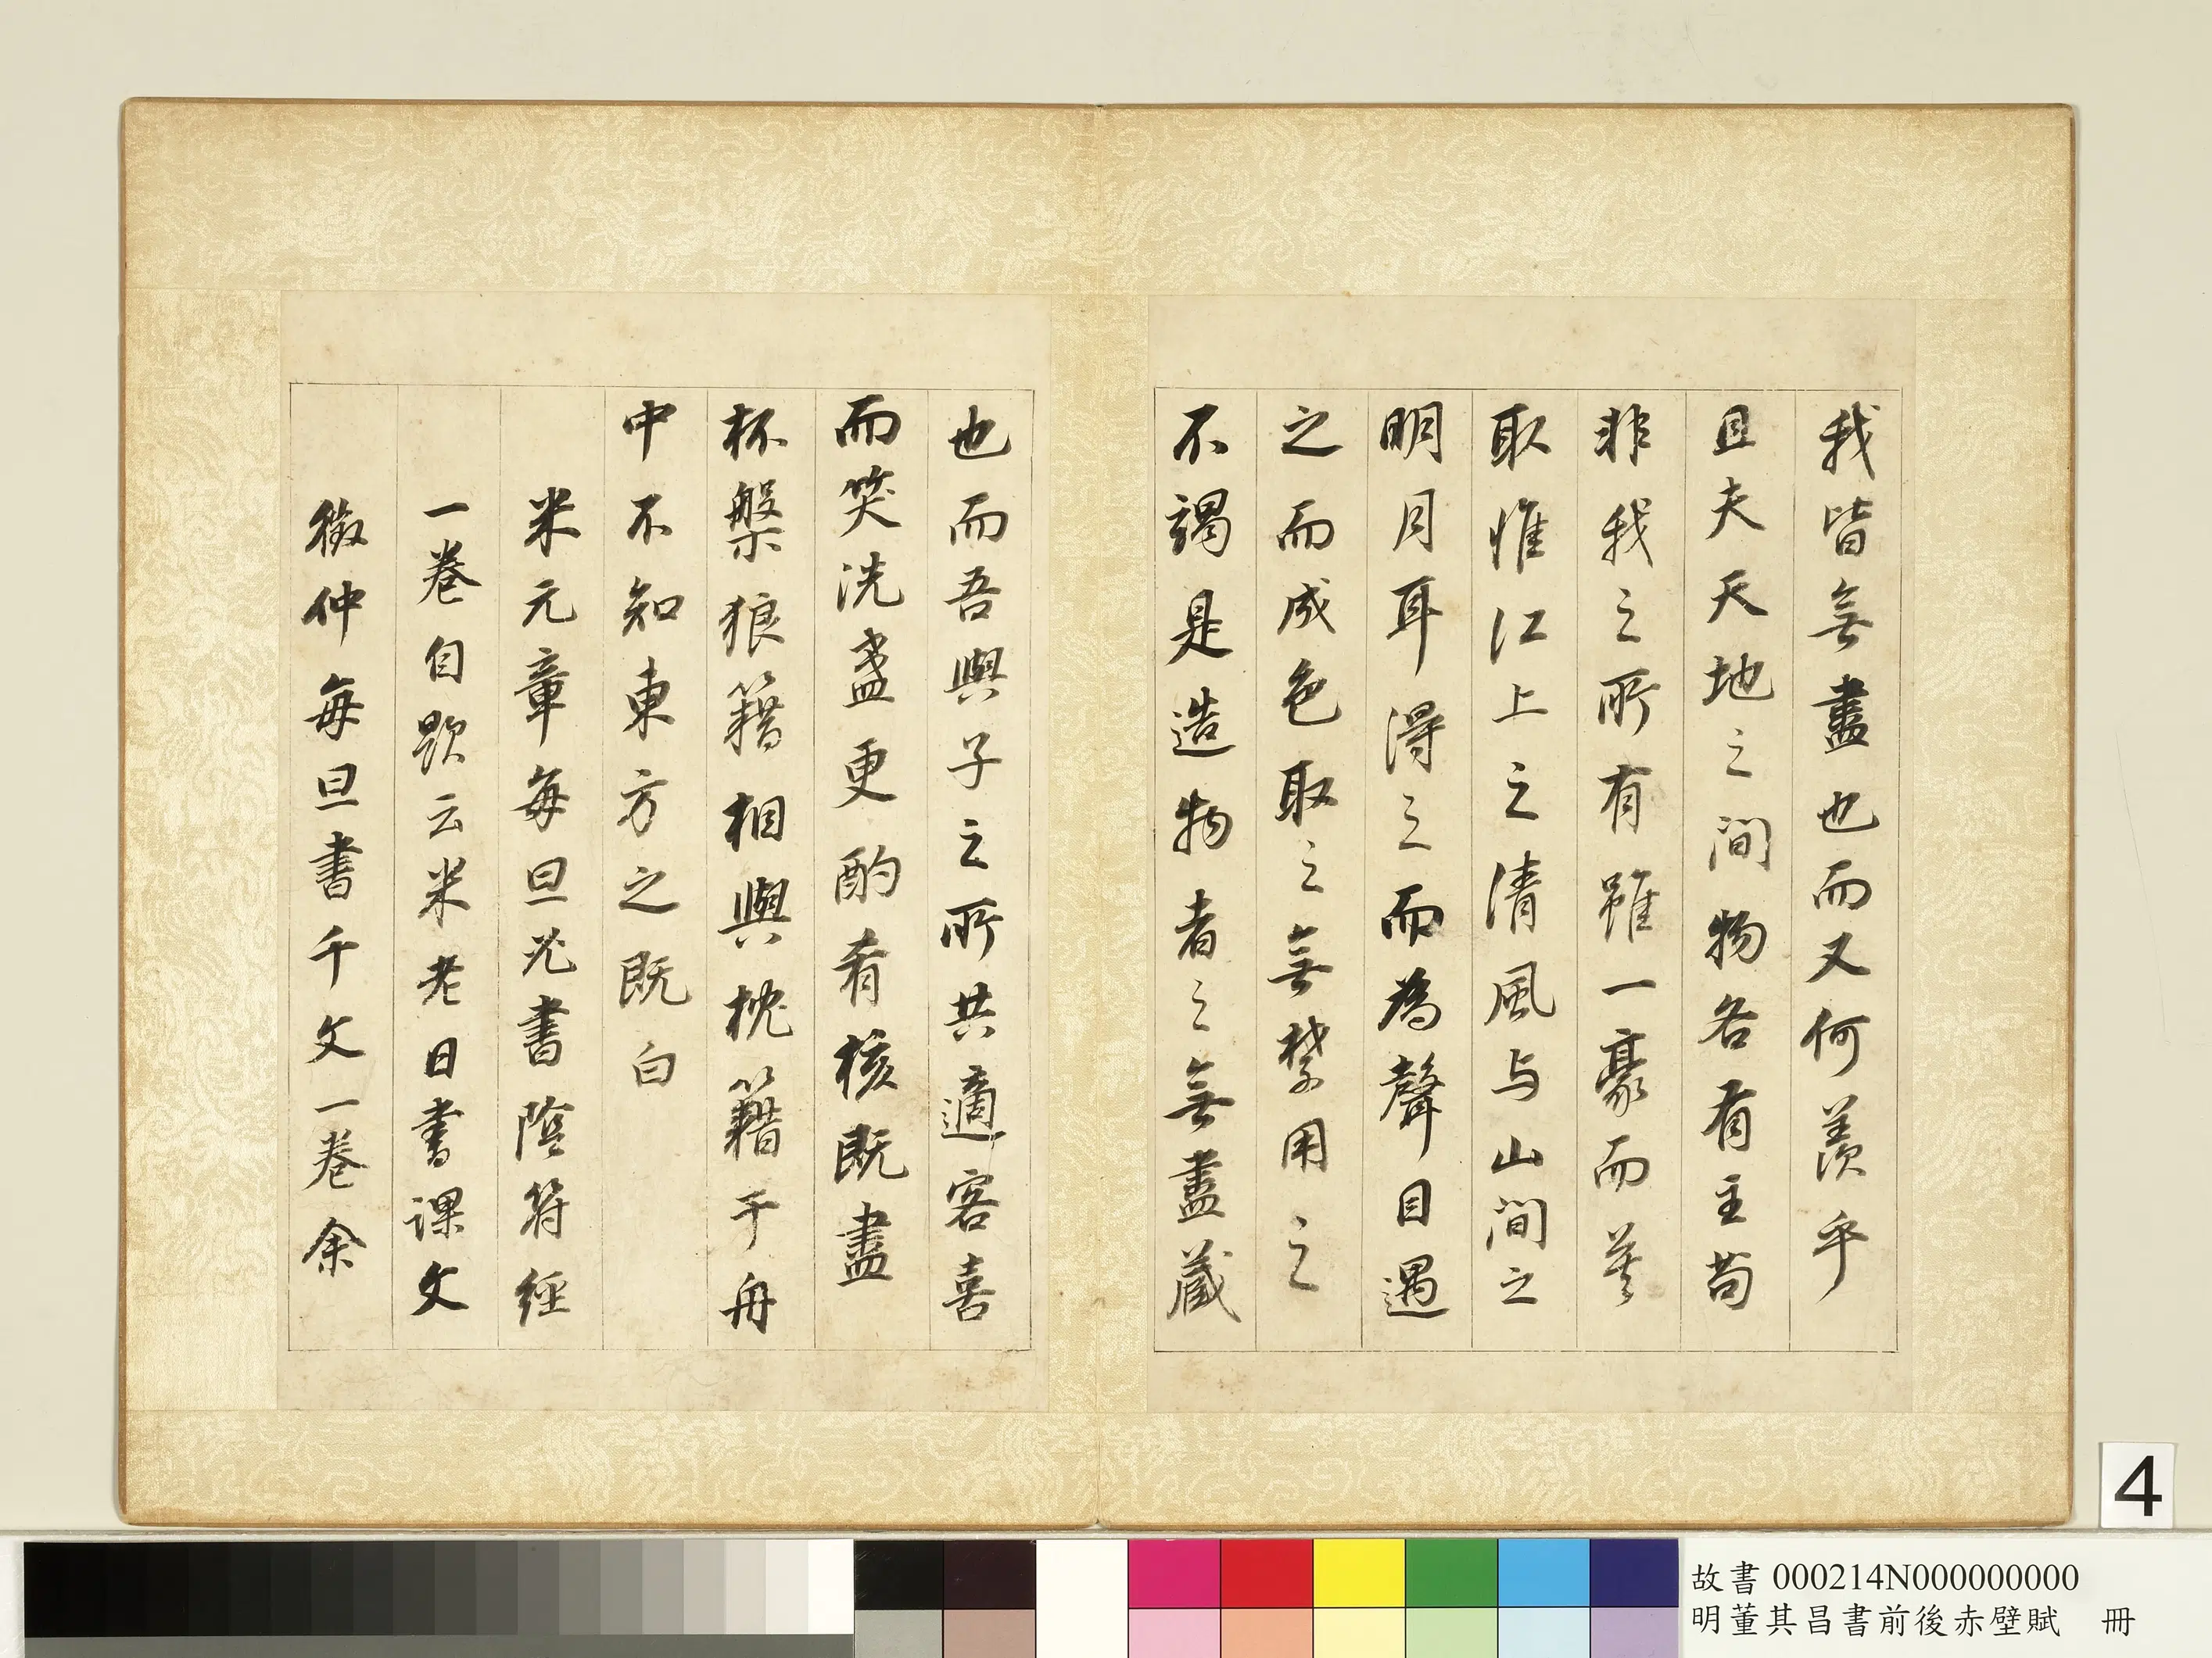 我皆無盡也而又何羨乎
且夫天地之間物各有主苟
非我之所有雖一豪而莫
取惟江上之清風与山間之
明月耳得之而為聲目遇
之而成色取之無禁用之
不竭是造物者之無盡藏
也而吾與子之所共適客喜
而笑洗盞更酌肴核既盡
杯槃狼籍相與枕籍于舟
中不知東方之既白
米元章每旦必書陰符經
一卷自題云米老日書課文
徵仲每旦書千文一卷余
4
故書 000214N000000000
明董其昌書前後赤壁賦 冊